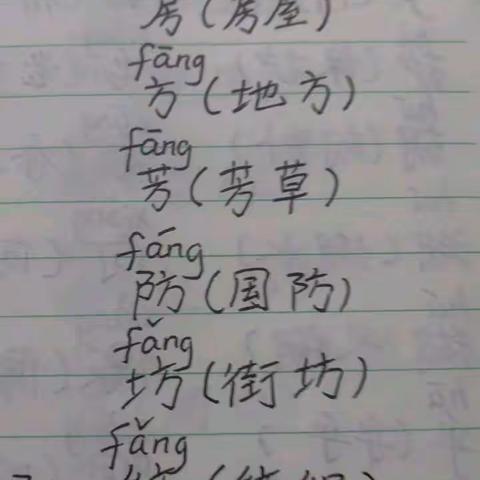 房(房屋)
fāng
方(地方)
fāng
芳(芳草)
fáng
防(国防)
fǎng
坊(街坊)
fǎng
纺(纺织)